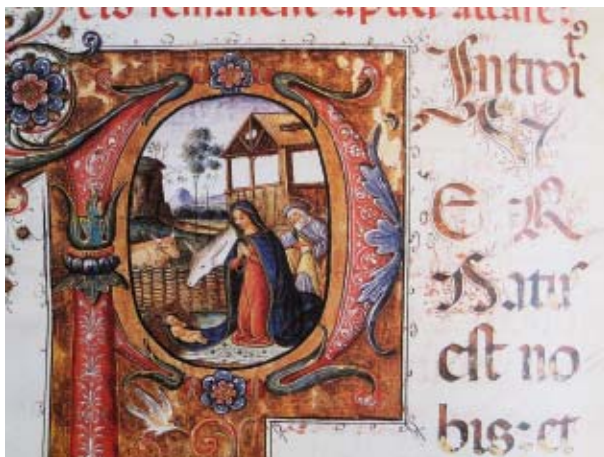 remanent apud altare:
Introit
P
E R
Natus
est no
bis: et